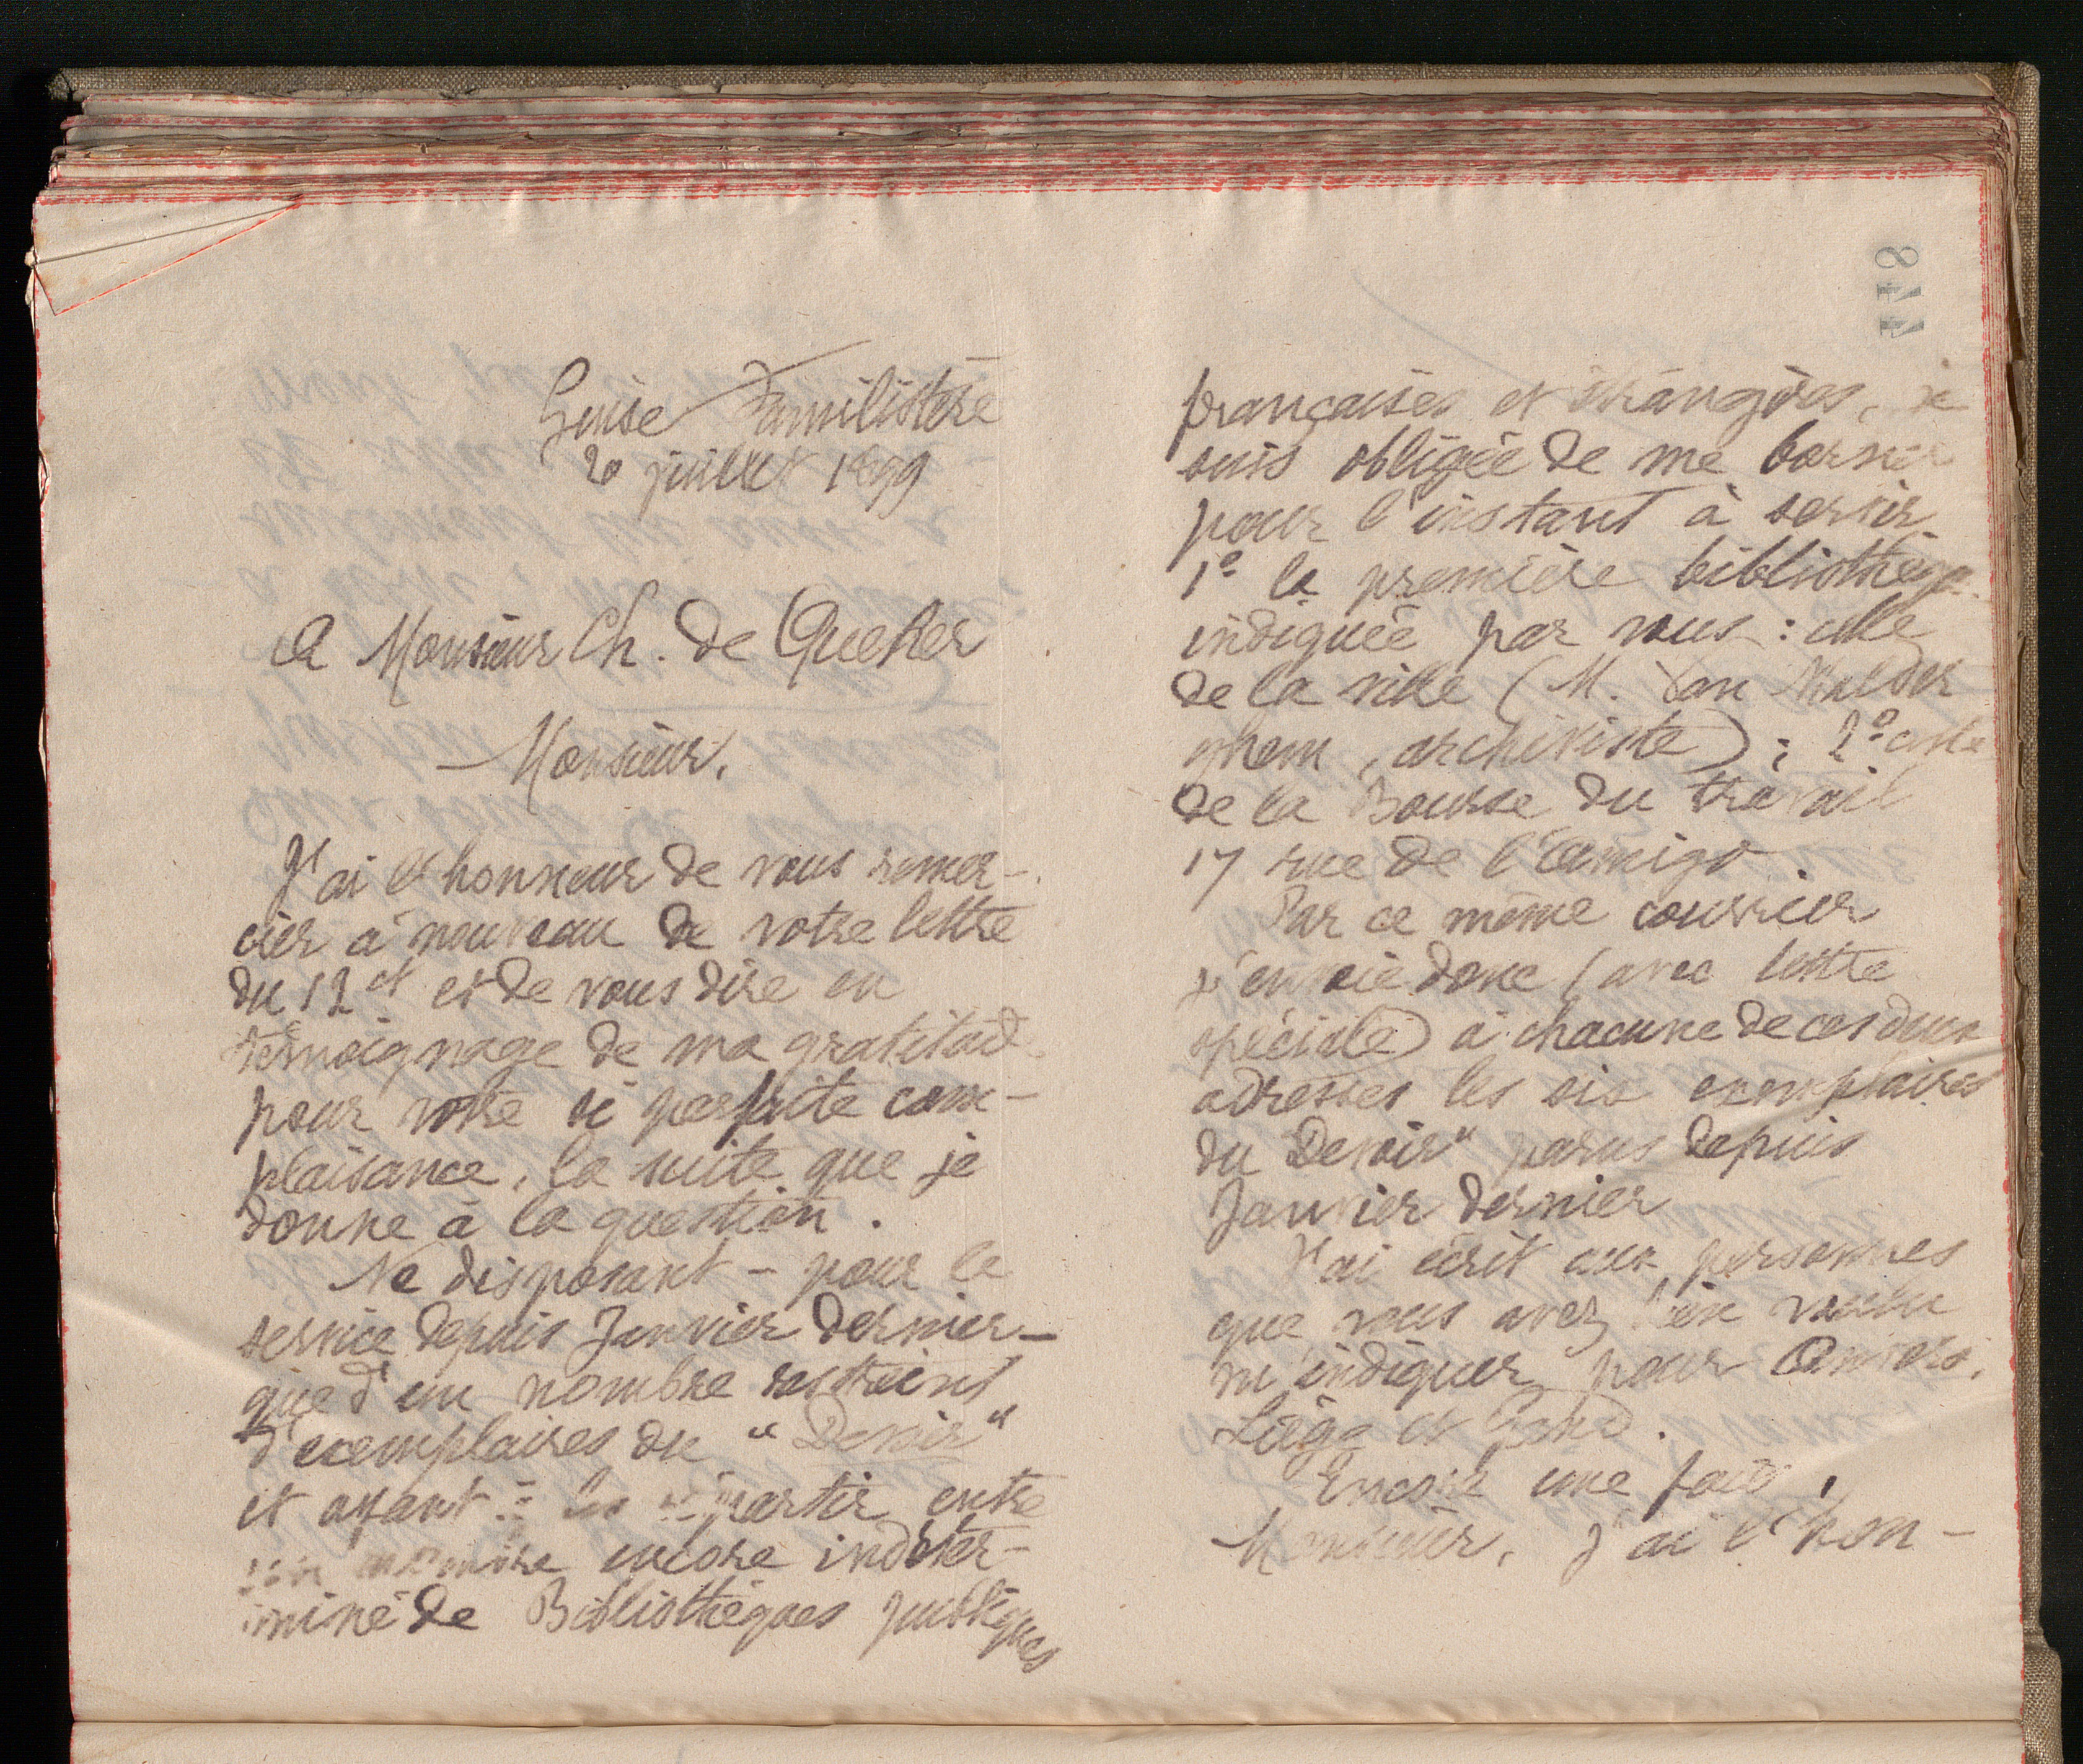 Guise Familistère
20 juillet 1899
A Monsieur Ch. de Queker
Monsieur,
J'ai l'honneur de vous remer-
cier à nouveau de votre lettre
du 12 ct et de vous dire en
témoignage de ma gratitude
pour votre si parfaite com-
plaisance, la suite que je
donne à la question.
Ne disposant - pour le
service depuis Janvier dernier -
que d'un nombre restreint
d'exemplaires du "Devoir"
et ayant à les répartir entre
un nombre encore indéter-
miné de Bibliothèques publiques
françaises et étrangères, je
suis obligée de me borner
pour l'instant à servir
1º la première bibliothèque
indiquée par vous : celle
de la ville (M. Van Malder
ghem, archiviste) ; 2º celle
de la Bourse du travail
17 rue de l'Amigo.
Par ce même courrier
j'envoie donc (avec lettre
spéciale) à chacune de ces deux
adresses les six exemplaires
du Devoir" parus depuis
Janvier dernier
J'ai écrit aux personnes
que vous avez bien voulu
m'indiquer pour Anvers,
Liège et Gand.
Encore une fois,
Monsieur, j'ai l'hon-
118